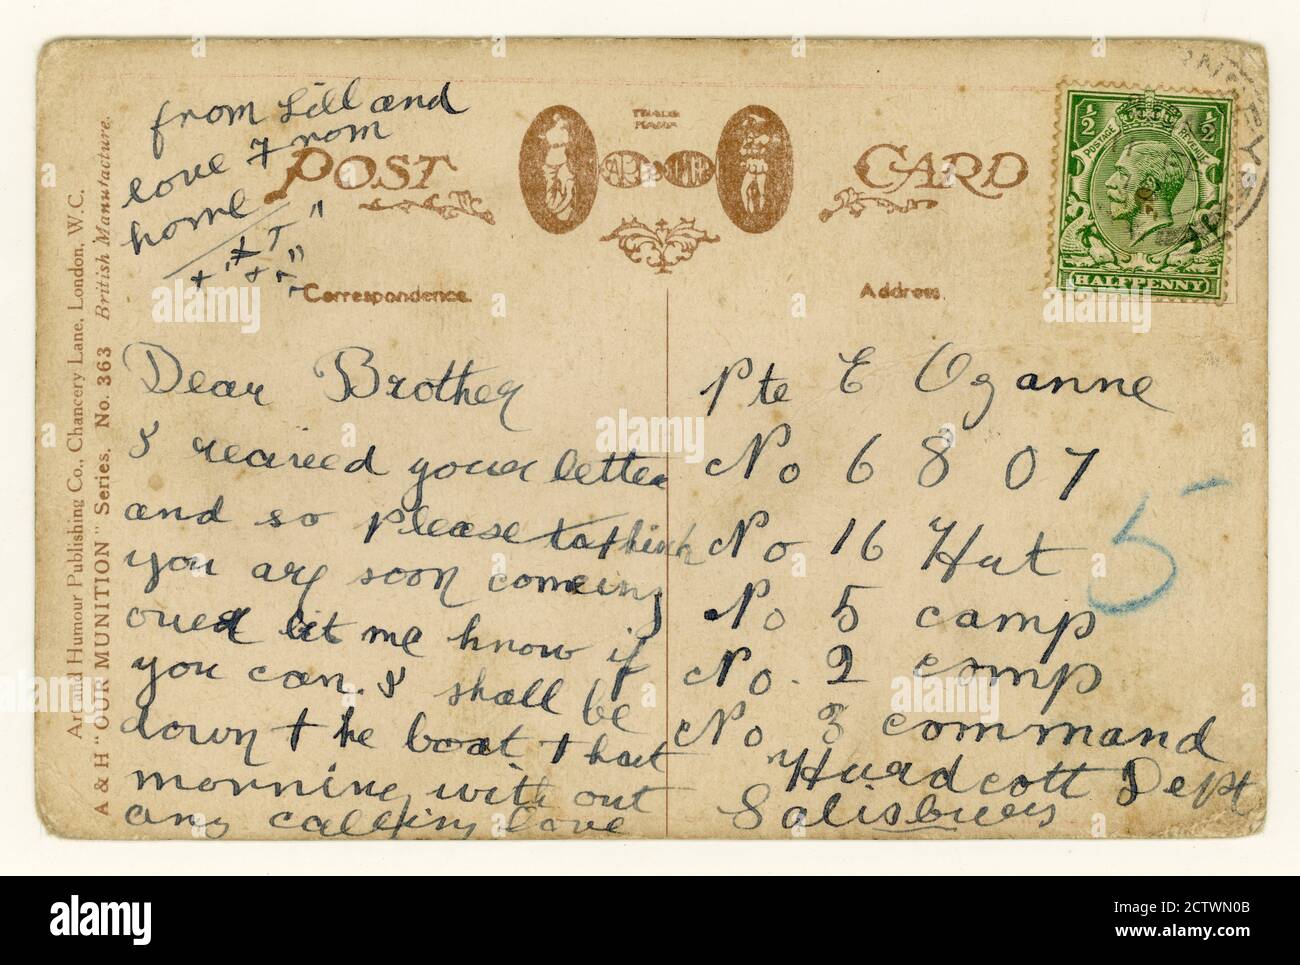 from Lill and
love from
home
POST CARD
TRADE
MARK
½ ½
POSTAGE REVENUE
HALFPENNY
Correspondence.
Address.
Art and Humour Publishing Co., Chancery Lane, London, W.C.
A & H "OUR MUNITION" Series. No. 363 British Manufacture.
Dear Brother
I received your letter
and so please to think
you are soon comeing
over let me know if
you can. I shall be
down the boat that
morning with out
any calling love
Pte E Oganne
No 6807
No 16 Hut
No 5 camp
No. 2 comp
No 3 command
Hurdcott Dept
Salisbury
5
alamy
Image ID: 2CTWN0B
www.alamy.com